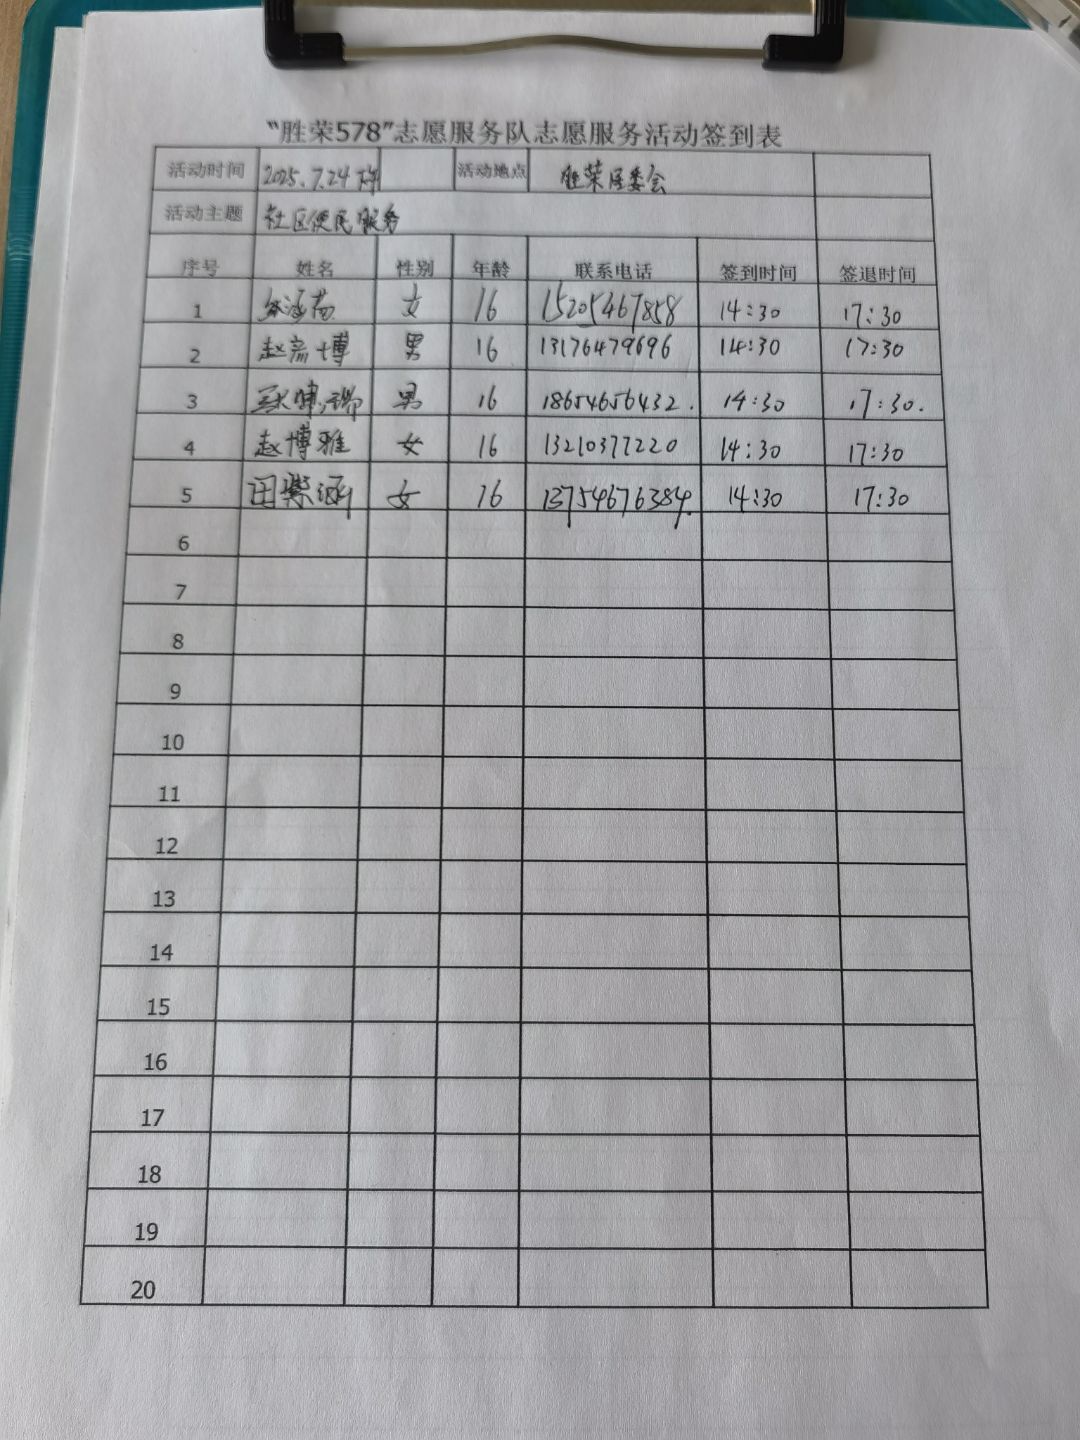 “胜荣578”志愿服务队志愿服务活动签到表
活动时间 2025.7.24 活动地点 胜荣居委会
活动主题 社区便民服务
序号 姓名 性别 年龄 联系电话 签到时间 签退时间
1 女 16 15205467858 14:30 17:30
2 赵彦博 男 16 13176479696 14:30 17:30
3 男 16 18654656432. 14:30 17:30.
4 赵博雅 女 16 13210377220 14:30 17:30
5 田紫涵 女 16 13754676384. 14:30 17:30
6
7
8
9
10
11
12
13
14
15
16
17
18
19
20